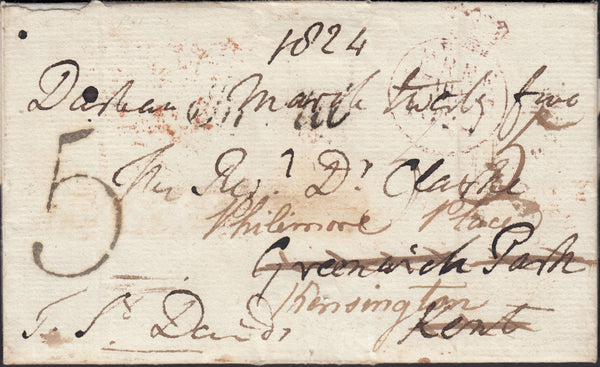 1824
Durham March twenty five
The Revd. Dr. Clarke
Philimore Place
Greenwich Park
Kensington
Kent
T. St. Davids
5